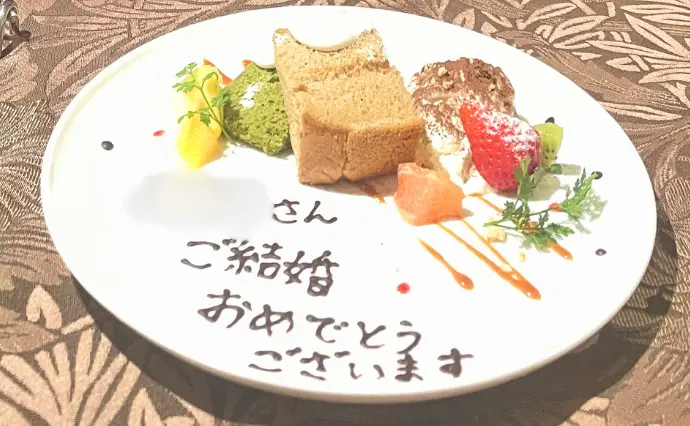 さん
ご結婚
おめでとう
ございます